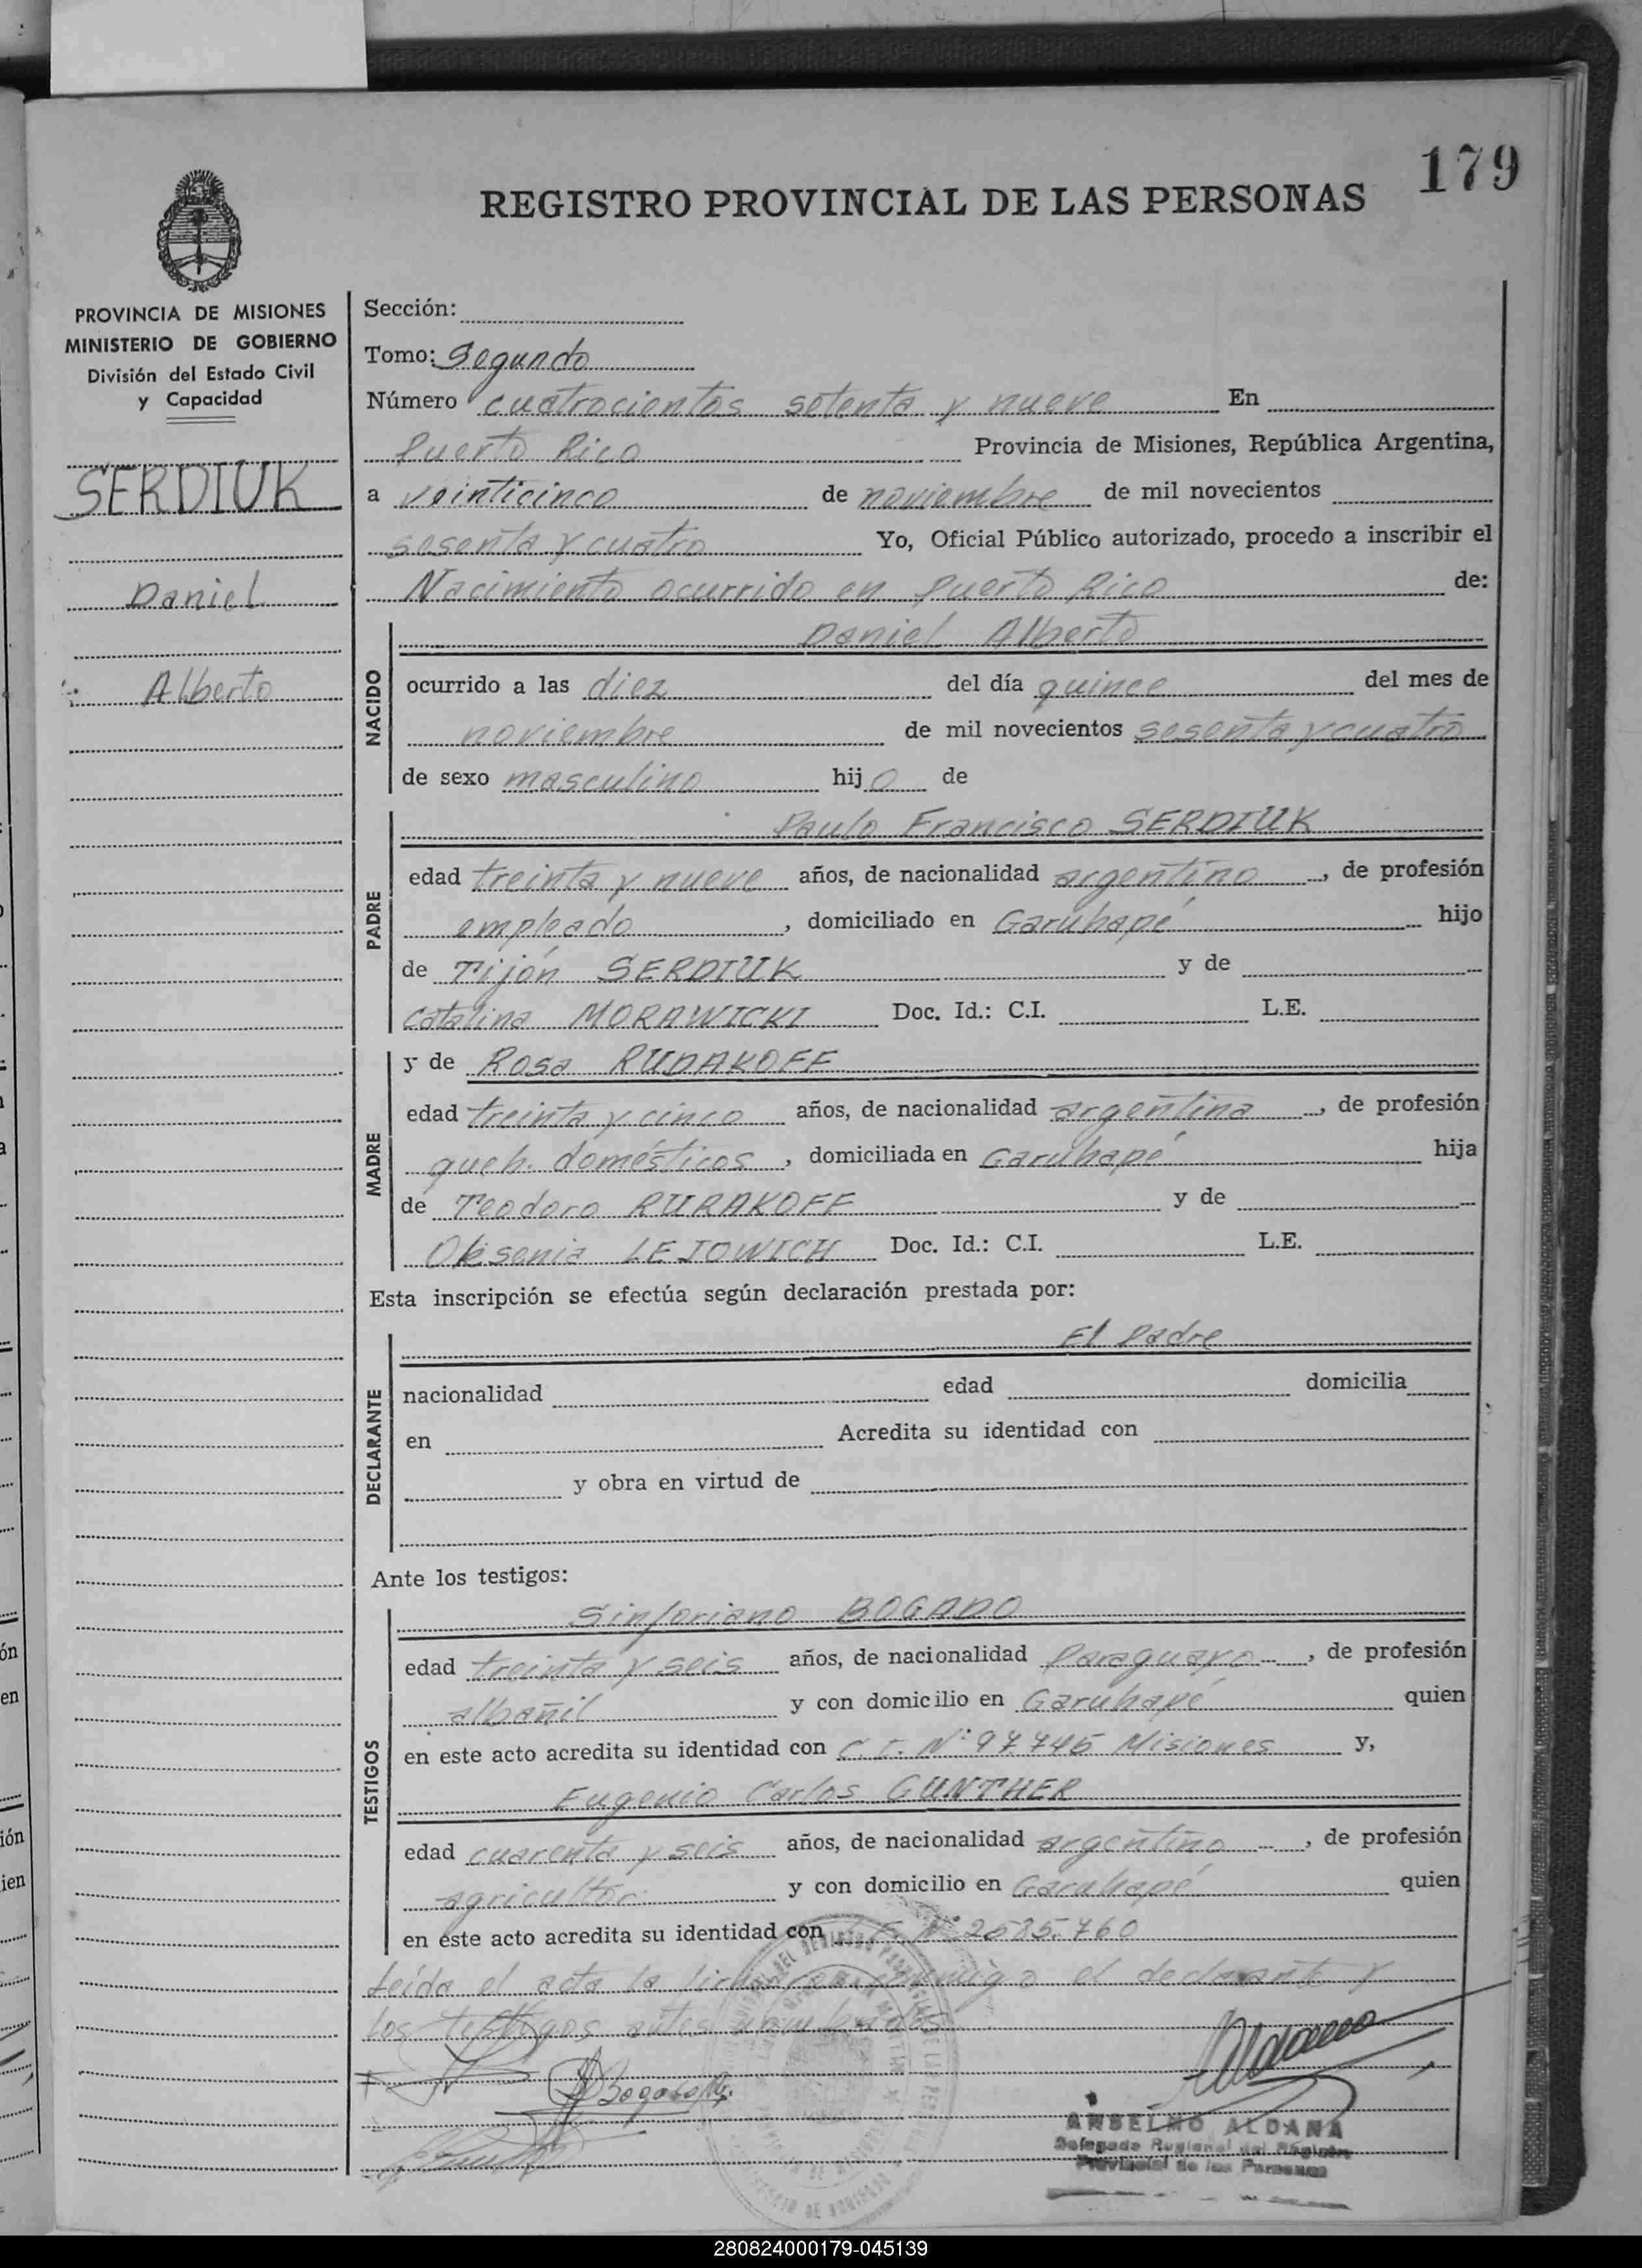 179
REGISTRO PROVINCIAL DE LAS PERSONAS
PROVINCIA DE MISIONES
MINISTERIO DE GOBIERNO
División del Estado Civil
y Capacidad
SERDIUK
Daniel
Alberto
Sección:
Tomo: Segundo
Número cuatrocientos setenta y nueve En
Puerto Rico Provincia de Misiones, República Argentina,
a veinticinco de noviembre de mil novecientos
sesenta y cuatro Yo, Oficial Público autorizado, procedo a inscribir el
Nacimiento ocurrido en Puerto Rico de:
NACIDO
Daniel Alberto
ocurrido a las diez del día quince del mes de
noviembre de mil novecientos sesenta y cuatro
de sexo masculino hijo de
PADRE
Paulo Francisco SERDIUK
edad treinta y nueve años, de nacionalidad argentino, de profesión
empleado, domiciliado en Garuhapé hijo
de Tijón SERDIUK y de
Catalina MORAWICKI Doc. Id.: C.I. L.E.
MADRE
y de Rosa RUDAKOFF
edad treinta y cinco años, de nacionalidad argentina, de profesión
queh. domésticos, domiciliada en Garuhapé hija
de Teodoro RURAKOFF y de
Oksenia LEJOWICH Doc. Id.: C.I. L.E.
Esta inscripción se efectúa según declaración prestada por:
DECLARANTE
El Padre
nacionalidad edad domicilia
en Acredita su identidad con
y obra en virtud de
Ante los testigos:
TESTIGOS
Sinforiano BOGADO
edad treinta y seis años, de nacionalidad Paraguayo, de profesión
albañil y con domicilio en Garuhapé quien
en este acto acredita su identidad con C.I. Nº 97.745 Misiones y,
Eugenio Carlos GUNTHER
edad cuarenta y seis años, de nacionalidad argentino, de profesión
agricultor y con domicilio en Garuhapé quien
en este acto acredita su identidad con Nº 2585.760
Leída el acta la conmigo el declarante y
los testigos antes nombrados
ANSELMO ALDANA
Delegado Regional del Registro
Provincial de las Personas
280824000179-045139